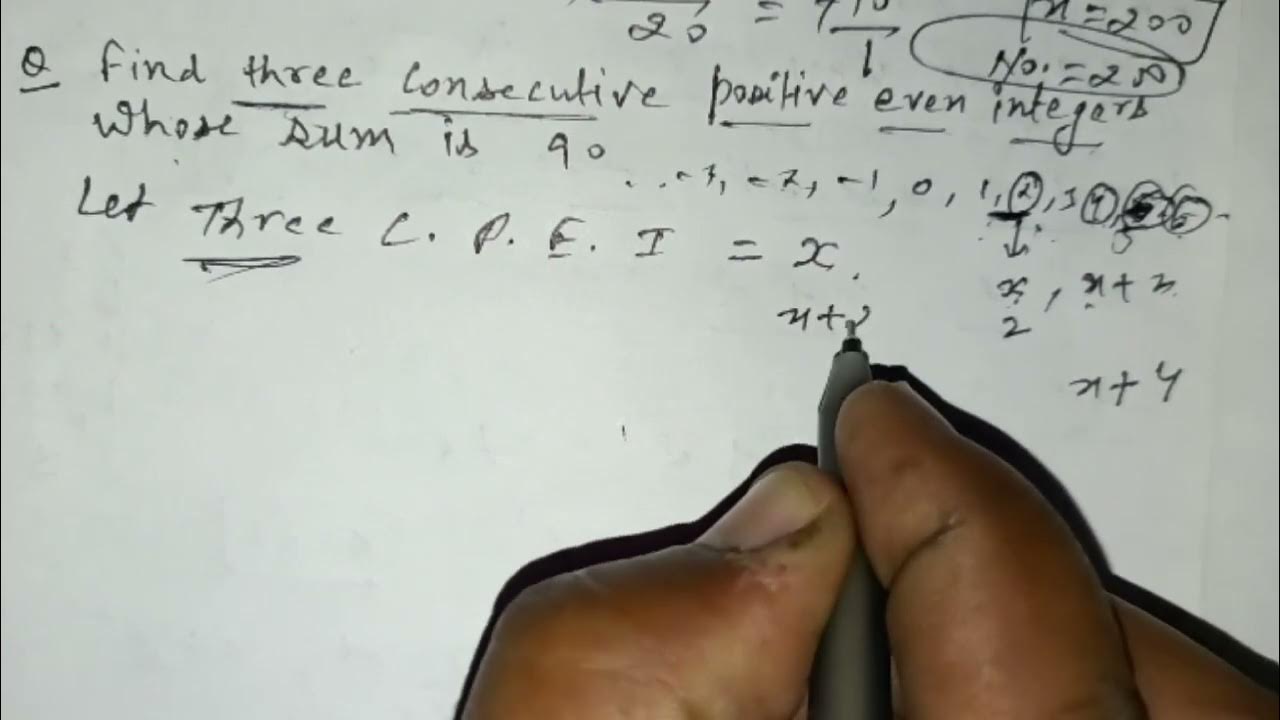 20 = 
x = 200
No. = 200
Q Find three consecutive positive even integers
whose sum is 90
-1, 0, 1, 2, 3
Let Three C. P. E. I = x.
x, x+2
x+2
2
x+4